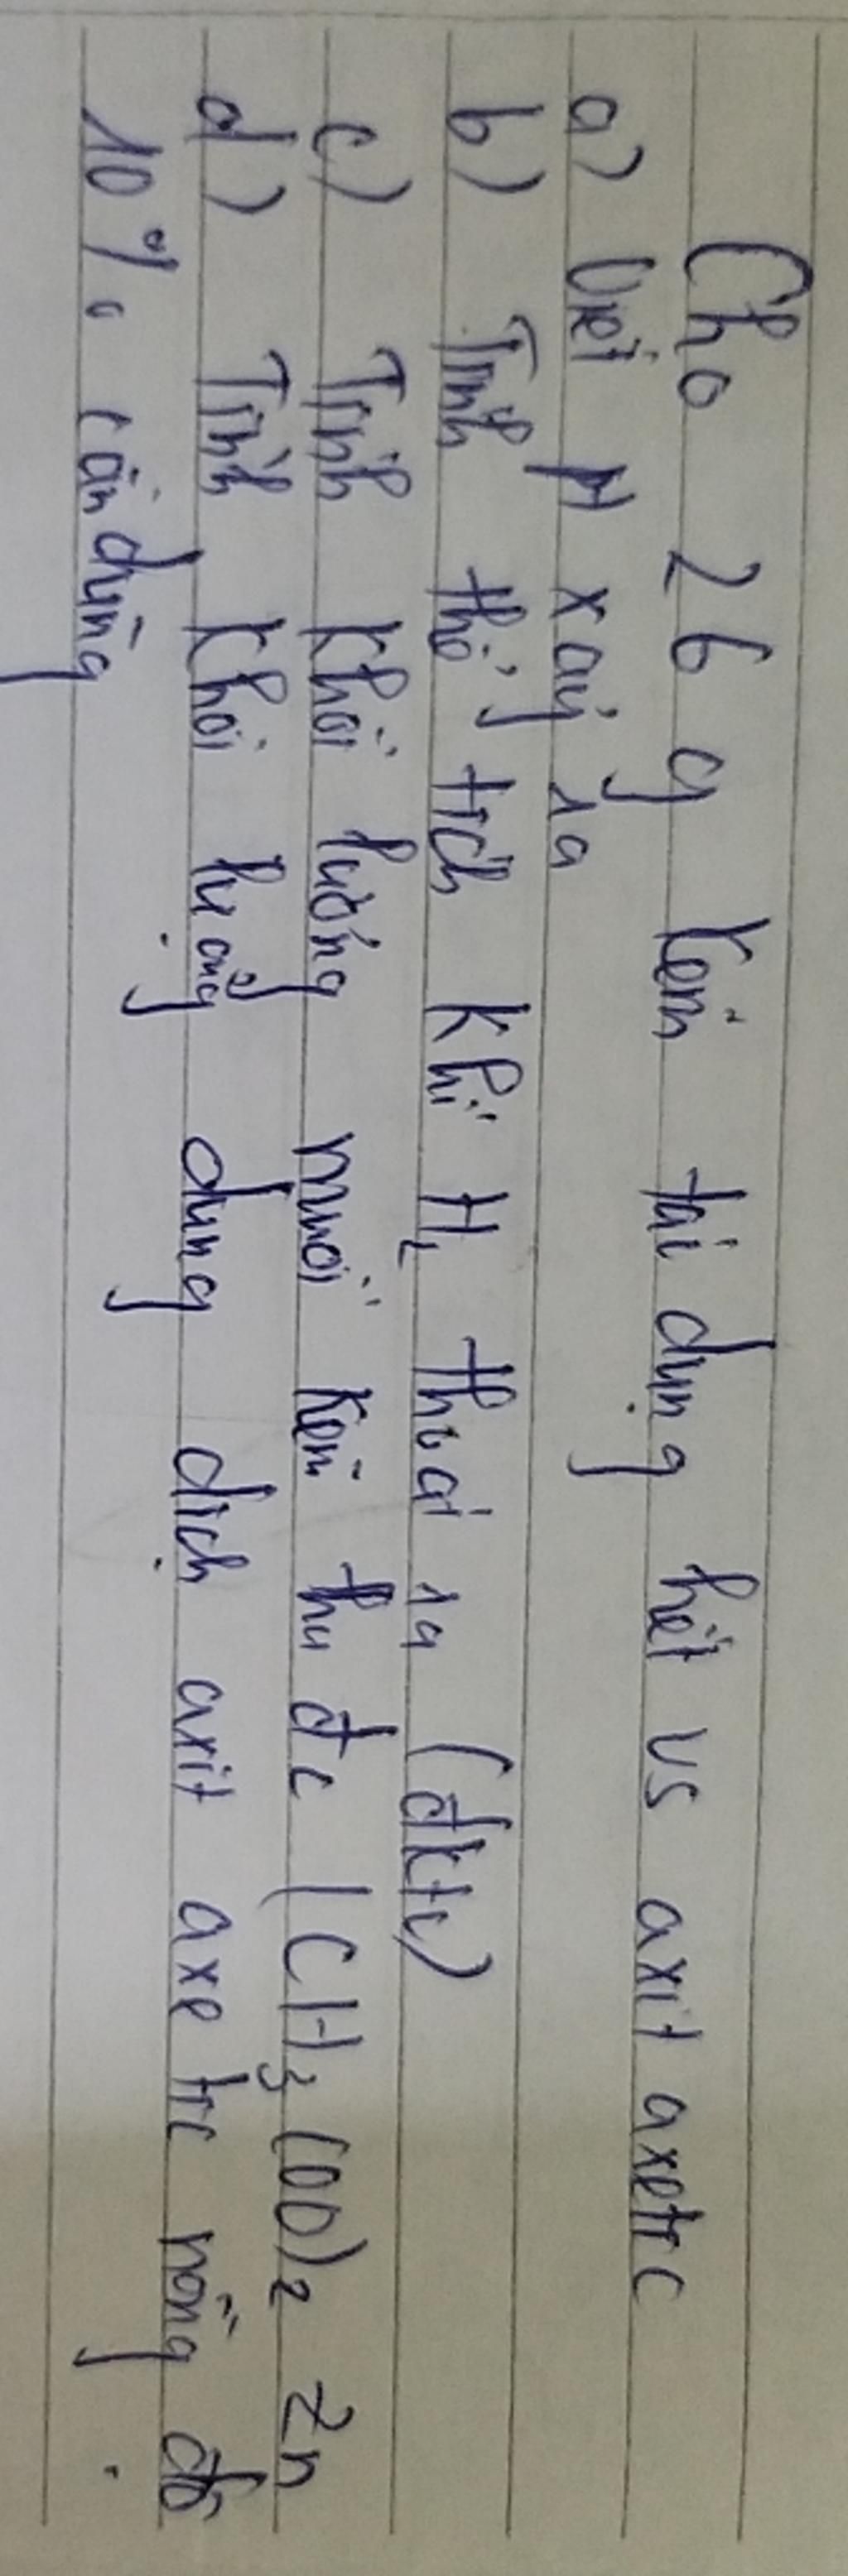 Cho 26 g kẽm tái dụng hết vs axit axetic
a) Viết pt xảy ra
b) Tính thể tích khí H2 thoát ra (đktc)
c) Tính khối lượng muối kẽm thu đc (CH3COO)2 Zn
d) Tính khối lượng dung dịch axit axetic nồng độ
10% cần dùng